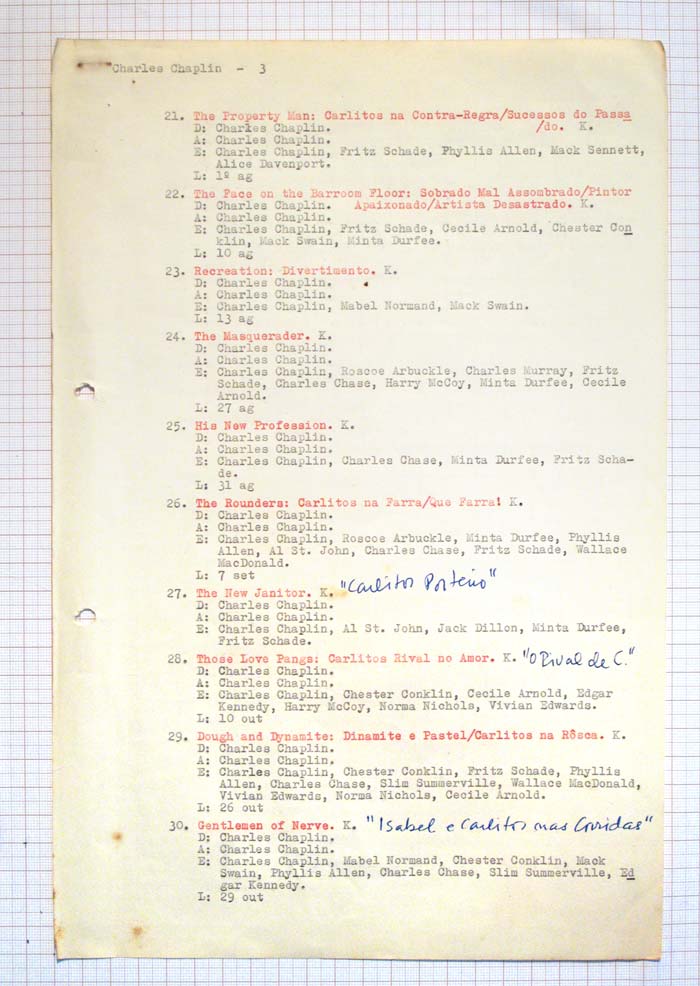 Charles Chaplin - 3
21. The Property Man: Carlitos na Contra-Regra/Sucessos do Passa
D: Charles Chaplin. /do. K.
A: Charles Chaplin.
E: Charles Chaplin, Fritz Schade, Phyllis Allen, Mack Sennett,
Alice Davenport.
L: 1º ag
22. The Face on the Barroom Floor: Sobrado Mal Assombrado/Pintor
D: Charles Chaplin. Apaixonado/Artista Desastrado. K.
A: Charles Chaplin.
E: Charles Chaplin, Fritz Schade, Cecile Arnold, Chester Con
klin, Mack Swain, Minta Durfee.
L: 10 ag
23. Recreation: Divertimento. K.
D: Charles Chaplin.
A: Charles Chaplin.
E: Charles Chaplin, Mabel Normand, Mack Swain.
L: 13 ag
24. The Masquerader. K.
D: Charles Chaplin.
A: Charles Chaplin.
E: Charles Chaplin, Roscoe Arbuckle, Charles Murray, Fritz
Schade, Charles Chase, Harry McCoy, Minta Durfee, Cecile
Arnold.
L: 27 ag
25. His New Profession. K.
D: Charles Chaplin.
A: Charles Chaplin.
E: Charles Chaplin, Charles Chase, Minta Durfee, Fritz Scha-
de.
L: 31 ag
26. The Rounders: Carlitos na Farra/Que Farra! K.
D: Charles Chaplin.
A: Charles Chaplin.
E: Charles Chaplin, Roscoe Arbuckle, Minta Durfee, Phyllis
Allen, Al St. John, Charles Chase, Fritz Schade, Wallace
MacDonald.
L: 7 set
27. The New Janitor. K. "Carlitos Porteiro"
D: Charles Chaplin.
A: Charles Chaplin.
E: Charles Chaplin, Al St. John, Jack Dillon, Minta Durfee,
Fritz Schade.
28. Those Love Pangs: Carlitos Rival no Amor. K. "O Rival de C."
D: Charles Chaplin.
A: Charles Chaplin.
E: Charles Chaplin, Chester Conklin, Cecile Arnold, Edgar
Kennedy, Harry McCoy, Norma Nichols, Vivian Edwards.
L: 10 out
29. Dough and Dynamite: Dinamite e Pastel/Carlitos na Rôsca. K.
D: Charles Chaplin.
A: Charles Chaplin.
E: Charles Chaplin, Chester Conklin, Fritz Schade, Phyllis
Allen, Charles Chase, Slim Summerville, Wallace MacDonald,
Vivian Edwards, Norma Nichols, Cecile Arnold.
L: 26 out
30. Gentlemen of Nerve. K. "Isabel e Carlitos nas Corridas"
D: Charles Chaplin.
A: Charles Chaplin.
E: Charles Chaplin, Mabel Normand, Chester Conklin, Mack
Swain, Phyllis Allen, Charles Chase, Slim Summerville, Ed
gar Kennedy.
L: 29 out